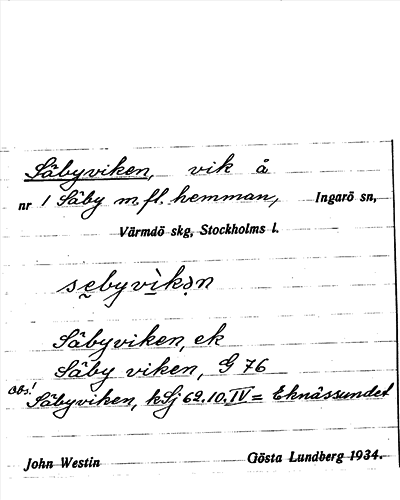 Säbyviken, vik å
nr 1 Säby m fl. hemman, Ingarö sn,
Värmdö skg, Stockholms l.
sebyvìkən
Säbyviken, ek
Säby viken, G 76
Obs! Säbyviken, kSj 62.10.IV = Eknässundet
John Westin Gösta Lundberg 1934.